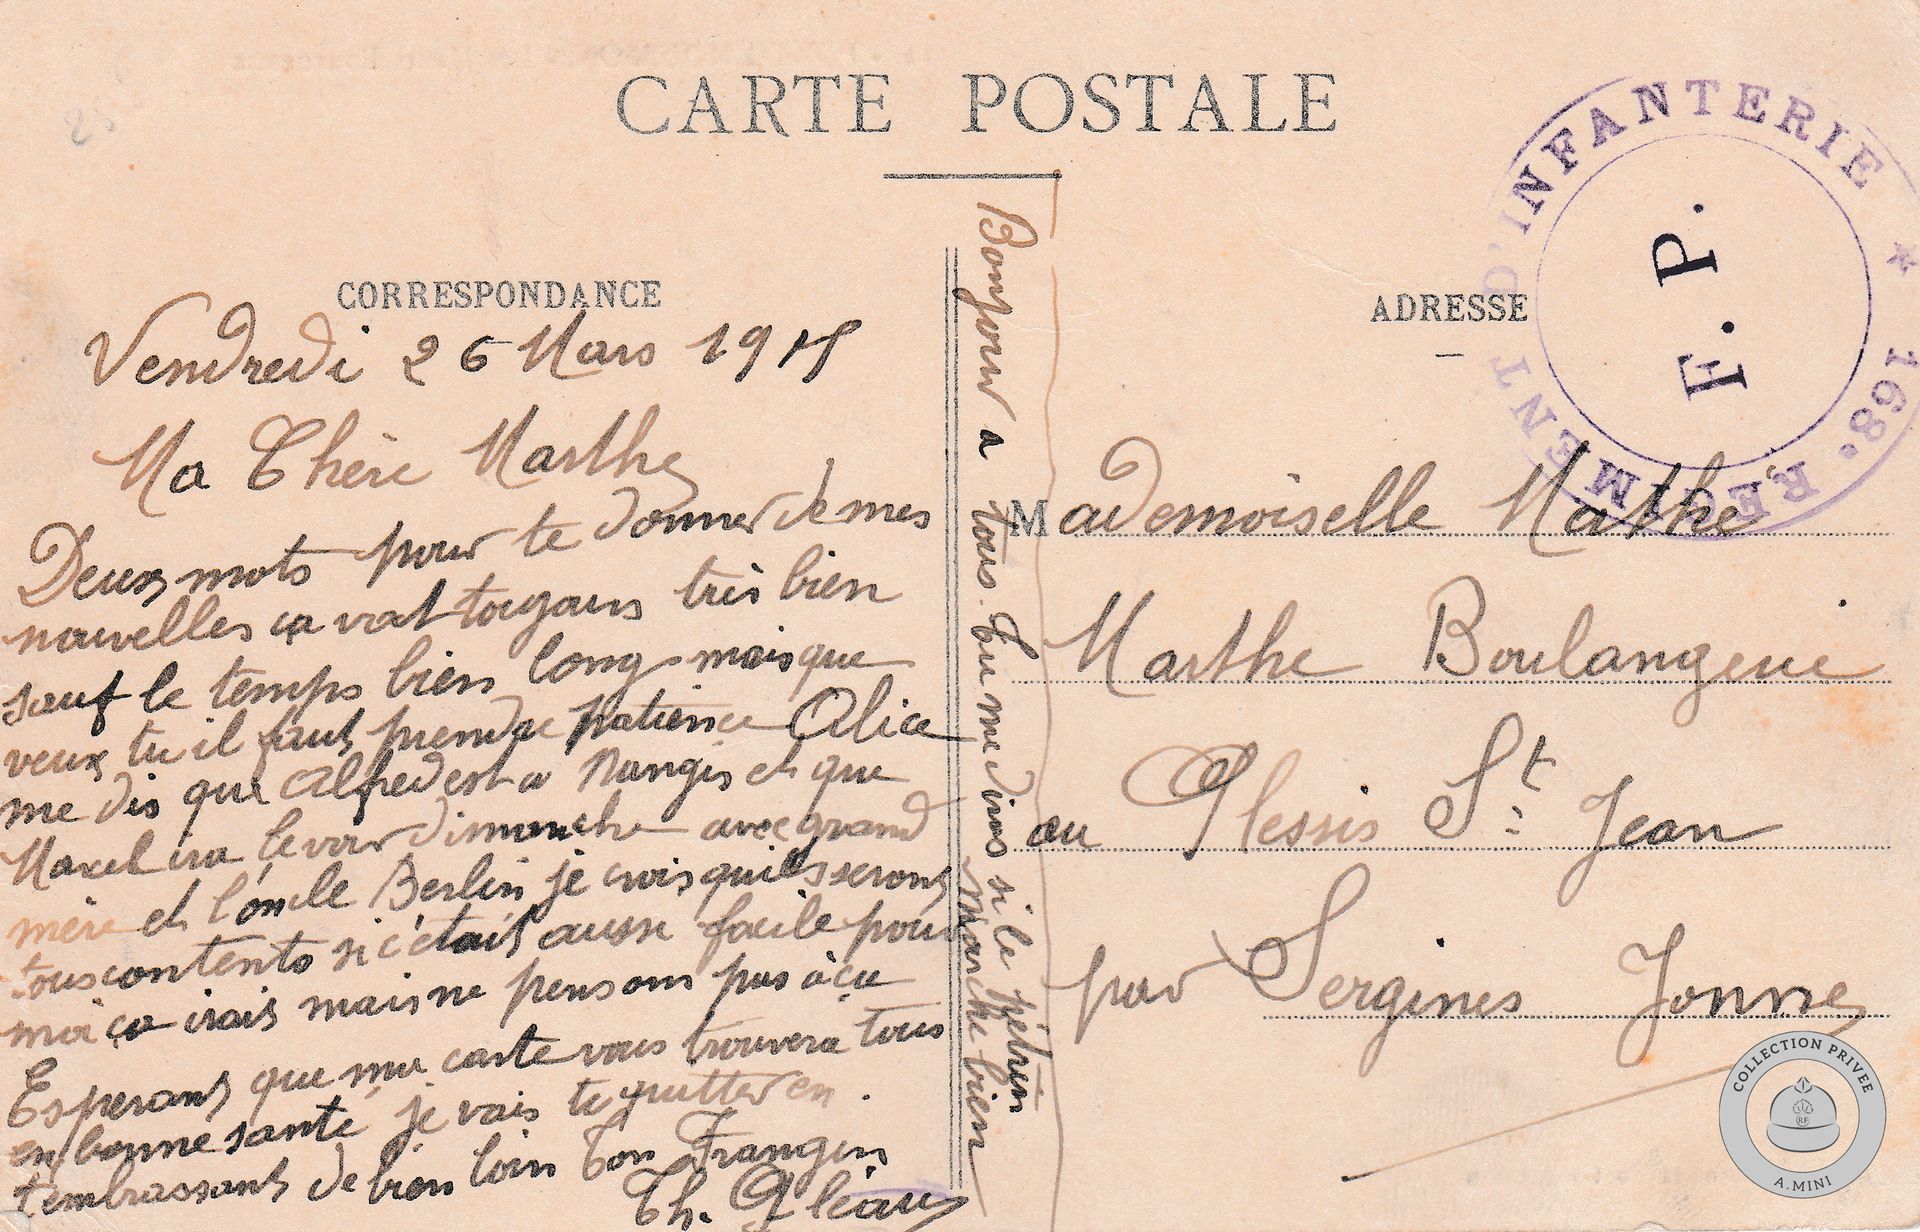 CARTE POSTALE
CORRESPONDANCE
Vendredi 26 Mars 1915
Ma Chère Marthe
Deux mots pour te donner de mes
nouvelles ça vat toujours très bien
sauf le temps bien long mais que
veux tu il faut prendre patience Alice
me dis que Alfred est a Nangis et que
Marcel ira le voir dimanche avec grand
mère et l'oncle Berlin je crois qu'ils seront
tous contents si c'était aussi facile pour
moi ça irais mais ne pensons pas à ça
Esperant que ma carte vous trouvera tous
en bonne santé je vais te quitter en
t'embrassant de bien loin Ton Frangin
Th.
Bonjour a tous. Tu me diras si le pétrin
marche bien
ADRESSE
168e REGIMENT D'INFANTERIE *
F. P.
Mademoiselle Mathe
Marthe
au Plessis St Jean
par Sergines Yonne
COLLECTION PRIVEE
RF
A.MINI